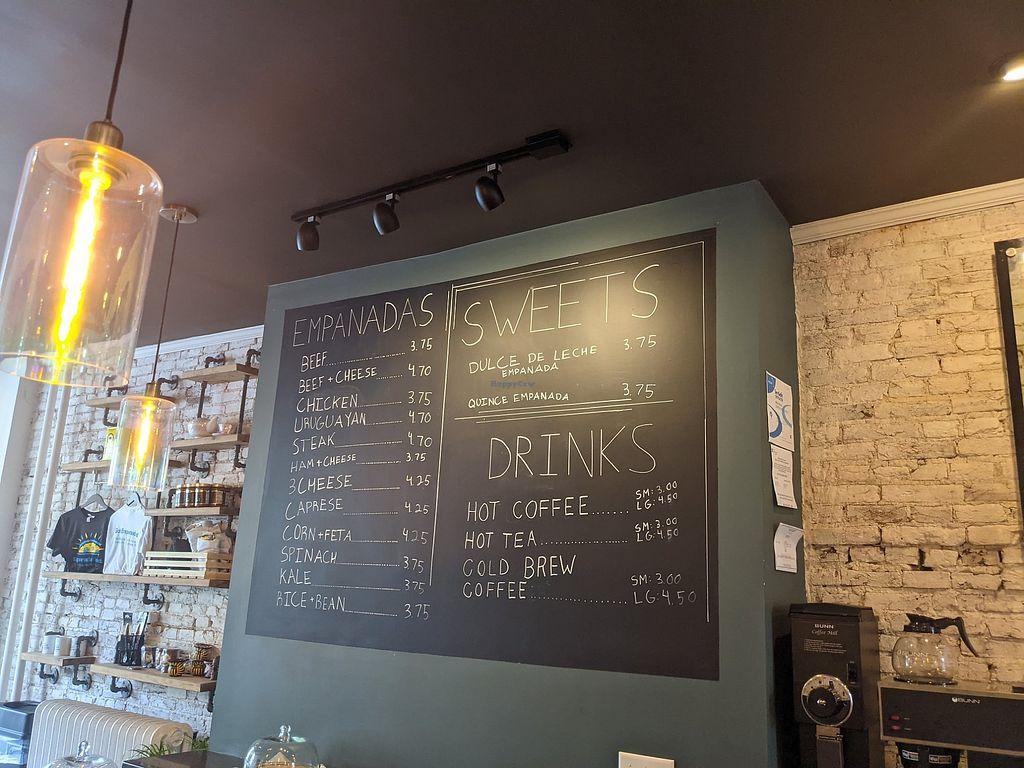 EMPANADAS
BEEF 3.75
BEEF + CHEESE 4.70
CHICKEN 3.75
URUGUAYAN 4.70
STEAK 4.70
HAM + CHEESE 3.75
3 CHEESE 4.25
CAPRESE 4.25
CORN + FETA 4.25
SPINACH 3.75
KALE 3.75
RICE + BEAN 3.75
SWEETS
DULCE DE LECHE 3.75
EMPANADA
HappyCow
QUINCE EMPANADA 3.75
DRINKS
HOT COFFEE....... SM: 3.00
LG: 4.50
HOT TEA SM: 3.00
LG: 4.50
COLD BREW
COFFEE SM: 3.00
LG: 4.50
BUNN
Coffee Mill
BUNN